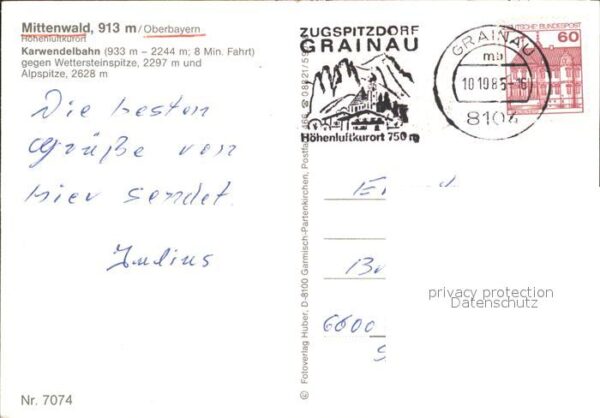 Mittenwald, 913 m/Oberbayern
Höhenluftkurort
Karwendelbahn (933 m – 2244 m; 8 Min. Fahrt)
gegen Wettersteinspitze, 2297 m und
Alpspitze, 2628 m
Die besten
Grüße von
hier sendet
Julius
Nr. 7074
© Fotoverlag Huber, D-8100 Garmisch-Partenkirchen, Postfach
ZUGSPITZDORF
GRAINAU
Höhenluftkurort 750 m
GRAINAU
mb
10.10.85-16
8104
DEUTSCHE BUNDESPOST
60
6600
privacy protection
Datenschutz